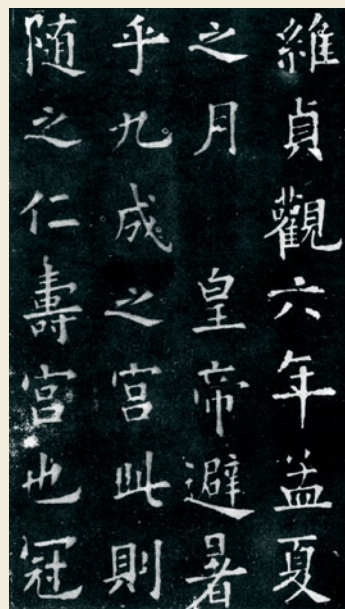 維貞觀六年孟夏
之月　皇帝避暑
乎九成之宮此則
隨之仁壽宮也冠